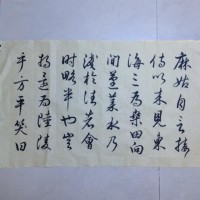 麻姑自言接
侍以来見東
海三為桑田向
間蓬萊水乃
淺於往者會
时略半也豈
将還為陸陵
乎方平笑曰